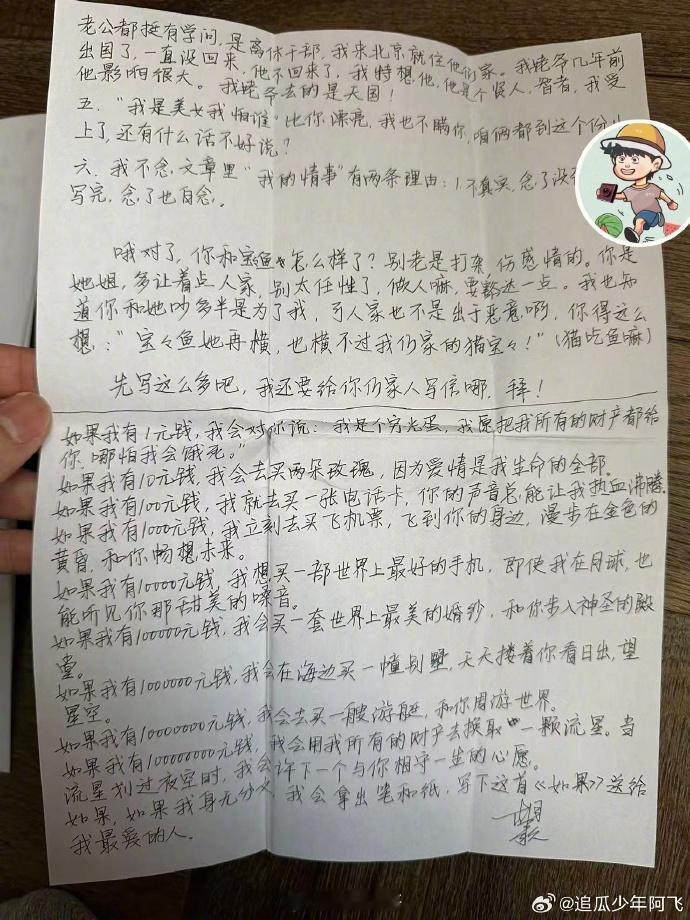 老公都挺有学问,是离休干部,我来北京就住他们家。我姥爷几年前
出国了,一直没回来,他不回来了,我特想他,他是个好人,智者,我受
他影响很大。我姥爷去的是天国!
五."我是美女我怕谁"比你漂亮,我也不瞒你,咱俩都到这个份儿
上了,还有什么话不好说?
六.我不念,文章里"我的情事"有两条理由:1.不真实,念了没
写完,念了也白念。
哦对了,你和宝鱼々怎么样了?别老是打架,伤感情的。你是
她姐,多让着点人家,别太任性了,做人嘛,要豁达一点。我也知
道你和她吵多半是为了我,可人家也不是出于恶意啊,你得这么
想:"宝々鱼她再横,也横不过我们家的猫宝々!"(猫吃鱼嘛)
先写这么多吧,我还要给你们家人写信哪,拜!
如果我有1元钱,我会对你说:"我是个穷光蛋,我愿把我所有的财产都给
你,哪怕我会饿死。"
如果我有10元钱,我会去买两朵玫瑰,因为爱情是我生命的全部。
如果我有100元钱,我就去买一张电话卡,你的声音总能让我热血沸腾。
如果我有1000元钱,我立刻去买飞机票,飞到你的身边,漫步在金色的
黄昏,和你畅想未来。
如果我有10000元钱,我想买一部世界上最好的手机,即使我在月球,也
能听见你那甜美的嗓音。
如果我有100000元钱,我会买一套世界上最美的婚纱,和你步入神圣的殿
堂。
如果我有1000000元钱,我会在海边买一幢别墅,天天搂着你看日出,望
星空。
如果我有10000000元钱,我会去买一艘游艇,和你周游世界。
如果我有100000000元钱,我会用我所有的财产去换取一颗流星。当
流星划过夜空时,我会许下一个与你相守一生的心愿。
如果,如果我身无分文,我会拿出笔和纸,写下这首《如果》送给
我最爱的人。
@追瓜少年阿飞